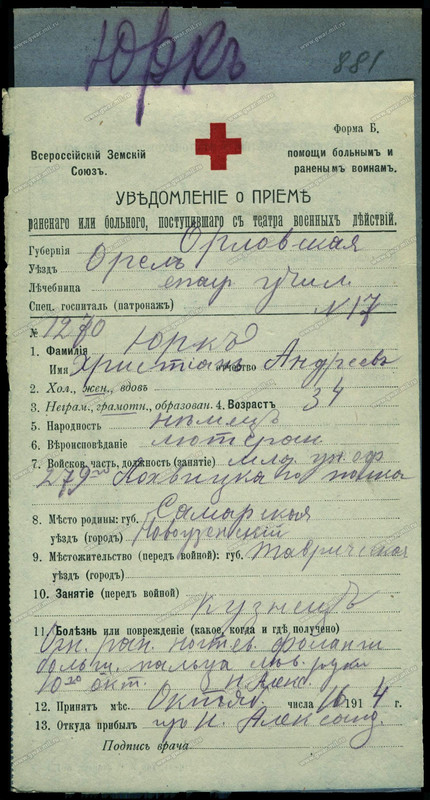 Юркъ
881
Форма Б.
Всероссійскій Земскій Союзъ.
помощи больнымъ и раненымъ воинамъ.
УВѢДОМЛЕНІЕ о ПРІЕМѢ
раненаго или больного, поступившаго съ театра военныхъ дѣйствій.
Губернія Орловская
Уѣздъ Орелъ
Лѣчебница епар учил.
Спец. госпиталь (патронажъ) N 17
№ 1270
1. Фамилія Юркъ
Имя Христіанъ Отчество Андреевъ
2. Хол., жен., вдовъ
3. Неграм., грамотн., образован. 4. Возрастъ 34
5. Народность нѣмецъ
6. Вѣроисповѣданіе лютеран
7. Войсков. часть, должность (занятіе) мла. ун. оф
279го Лохвицка го полка
8. Мѣсто родины: губ. Самарская
уѣздъ (городъ) Новоузенскій
9. Мѣстожительство (передъ войной); губ. Таврическая
уѣздъ (городъ)
10. Занятіе (передъ войной)
Кузнецъ
11. Болѣзнь или поврежденіе (какое, когда и гдѣ, получено)
Огн. ран. ногтев. фаланги
больш. пальца лѣв. руки
10го окт. н. Алекс.
12. Принятъ мѣс. Октяб. числа 16 1914 г.
13. Откуда прибылъ н. Александ.
Подпись врача